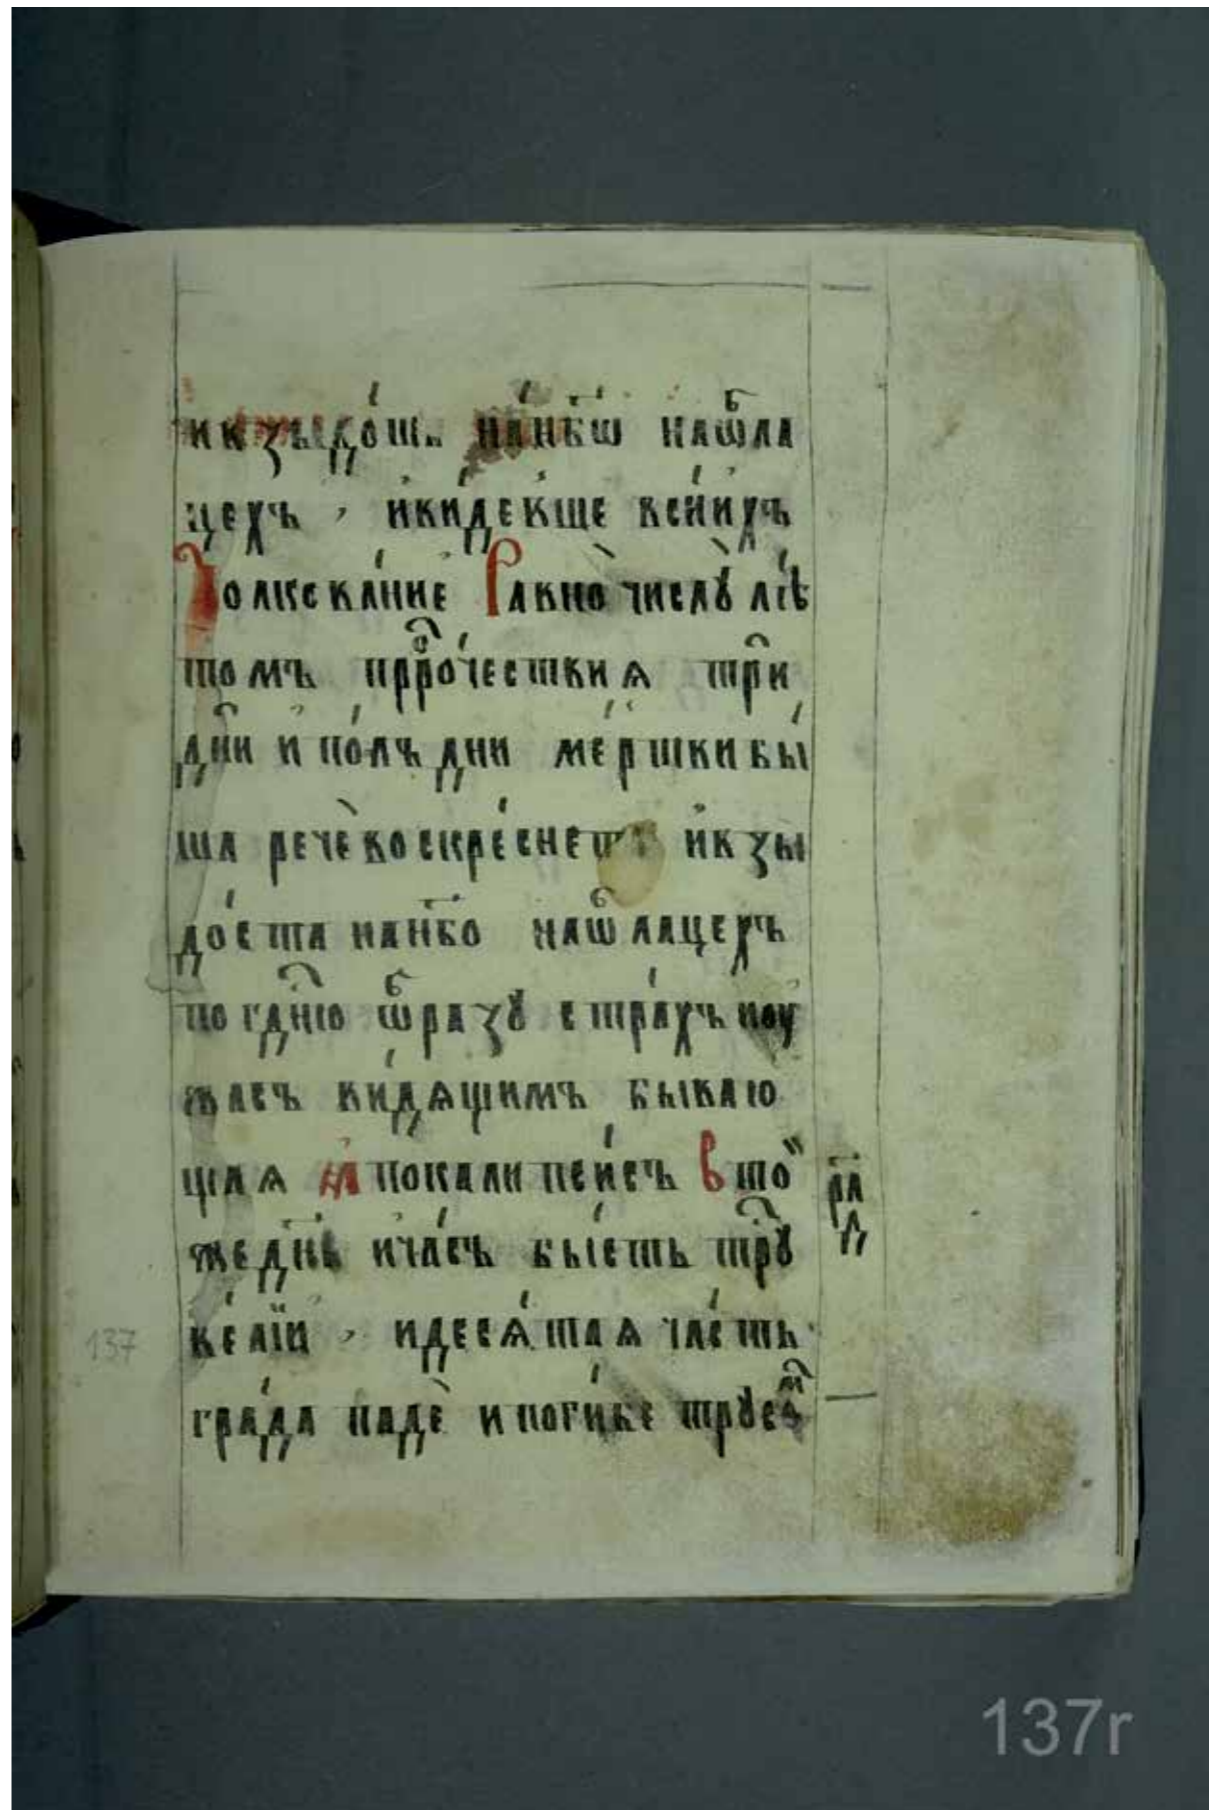 и взыдо́шь на́ нб҃ѡ на ѡ҆́бла
цехъ , и҆ ви́девше вси и҆хъ
Толкова́ние Равно̀ числꙋ̀ лѣ́
томъ прⷪ҇ро́чествия три
дн҃и и҆ по́лъ дни ме́ртви бы́
ша речѐ воскре́снетъ и҆ взы
до́ста на нб҃о на ѡблацехъ
по гдⷭ҇ню ѡбразꙋ стра́хъ и оу
жасъ ви́дящимъ бываю
щая А҆покалипси́съ В то
же дн҃ь и ча́съ бы́сть трꙋⷭ҇
ве́лїи , и десѧ́тая ча́сть
гра́да падѐ и поги́бе трꙋсоⷨ
рл҃д
137
137r